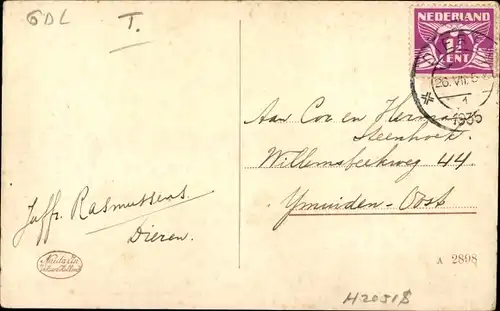 GDL
T.
NEDERLAND
1½
CENT
26.VII.
1
1935
Aan Cor en Herman
Steenhoek.
Willemsbeekweg 44
Ymuiden-Oost
Juffr. Rasmussens
Dieren.
A 2898